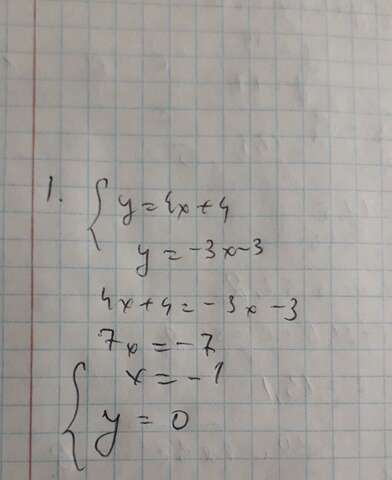 1. { y = 4x + 4
y = -3x - 3
4x + 4 = -3x - 3
7x = -7
{ x = -1
y = 0